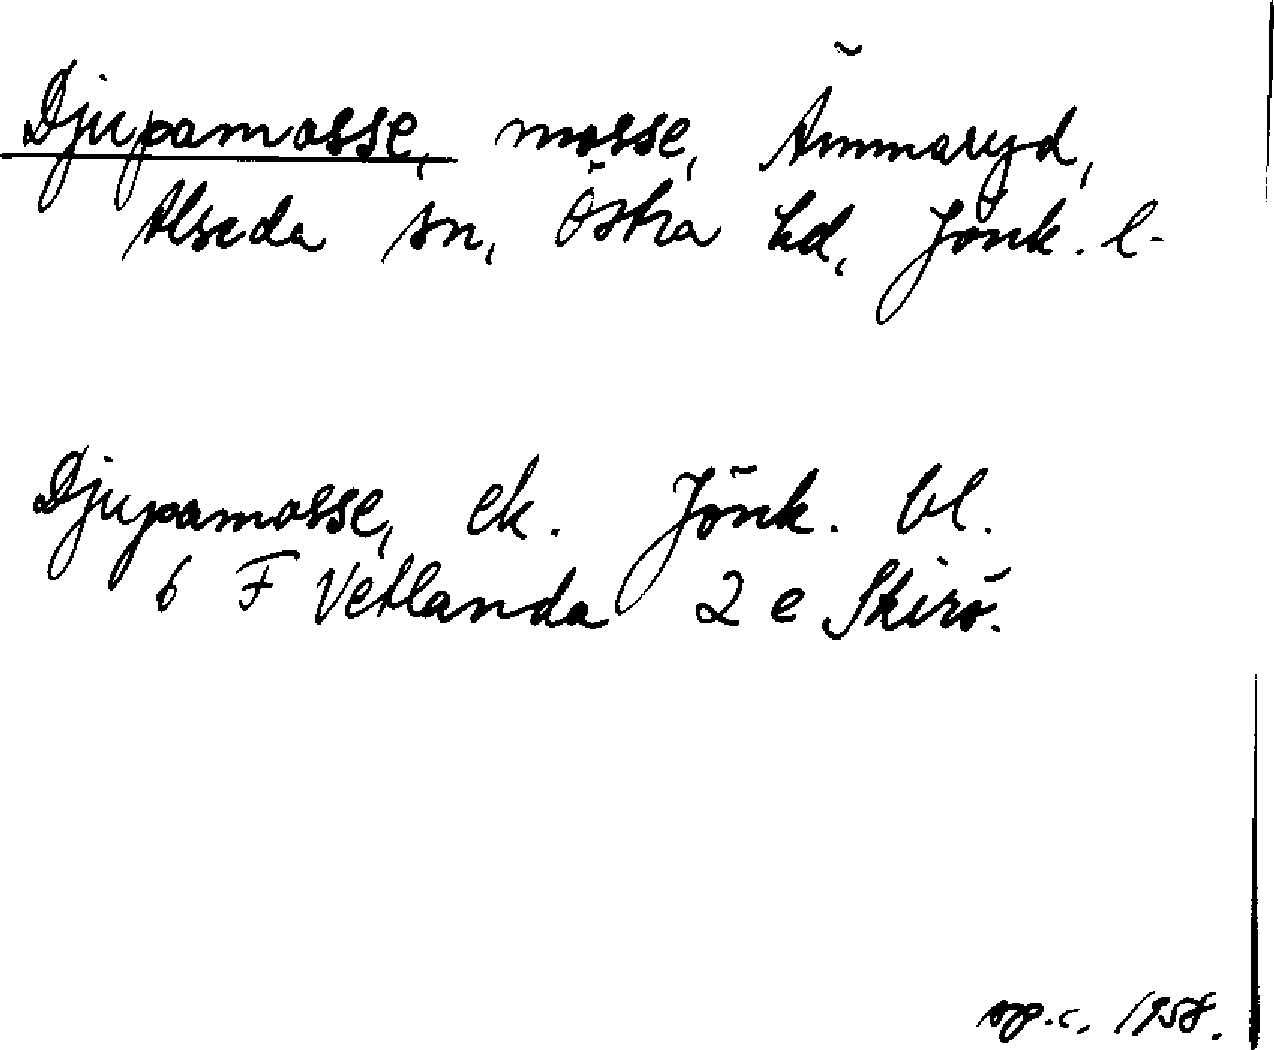 Djupamosse, mosse, Ämmaryd,
Alseda sn, Östra hd, Jönk. l.
Djupamosse, ek. Jönk. bl.
6 F Vetlanda 2 e Skirö.
1958.